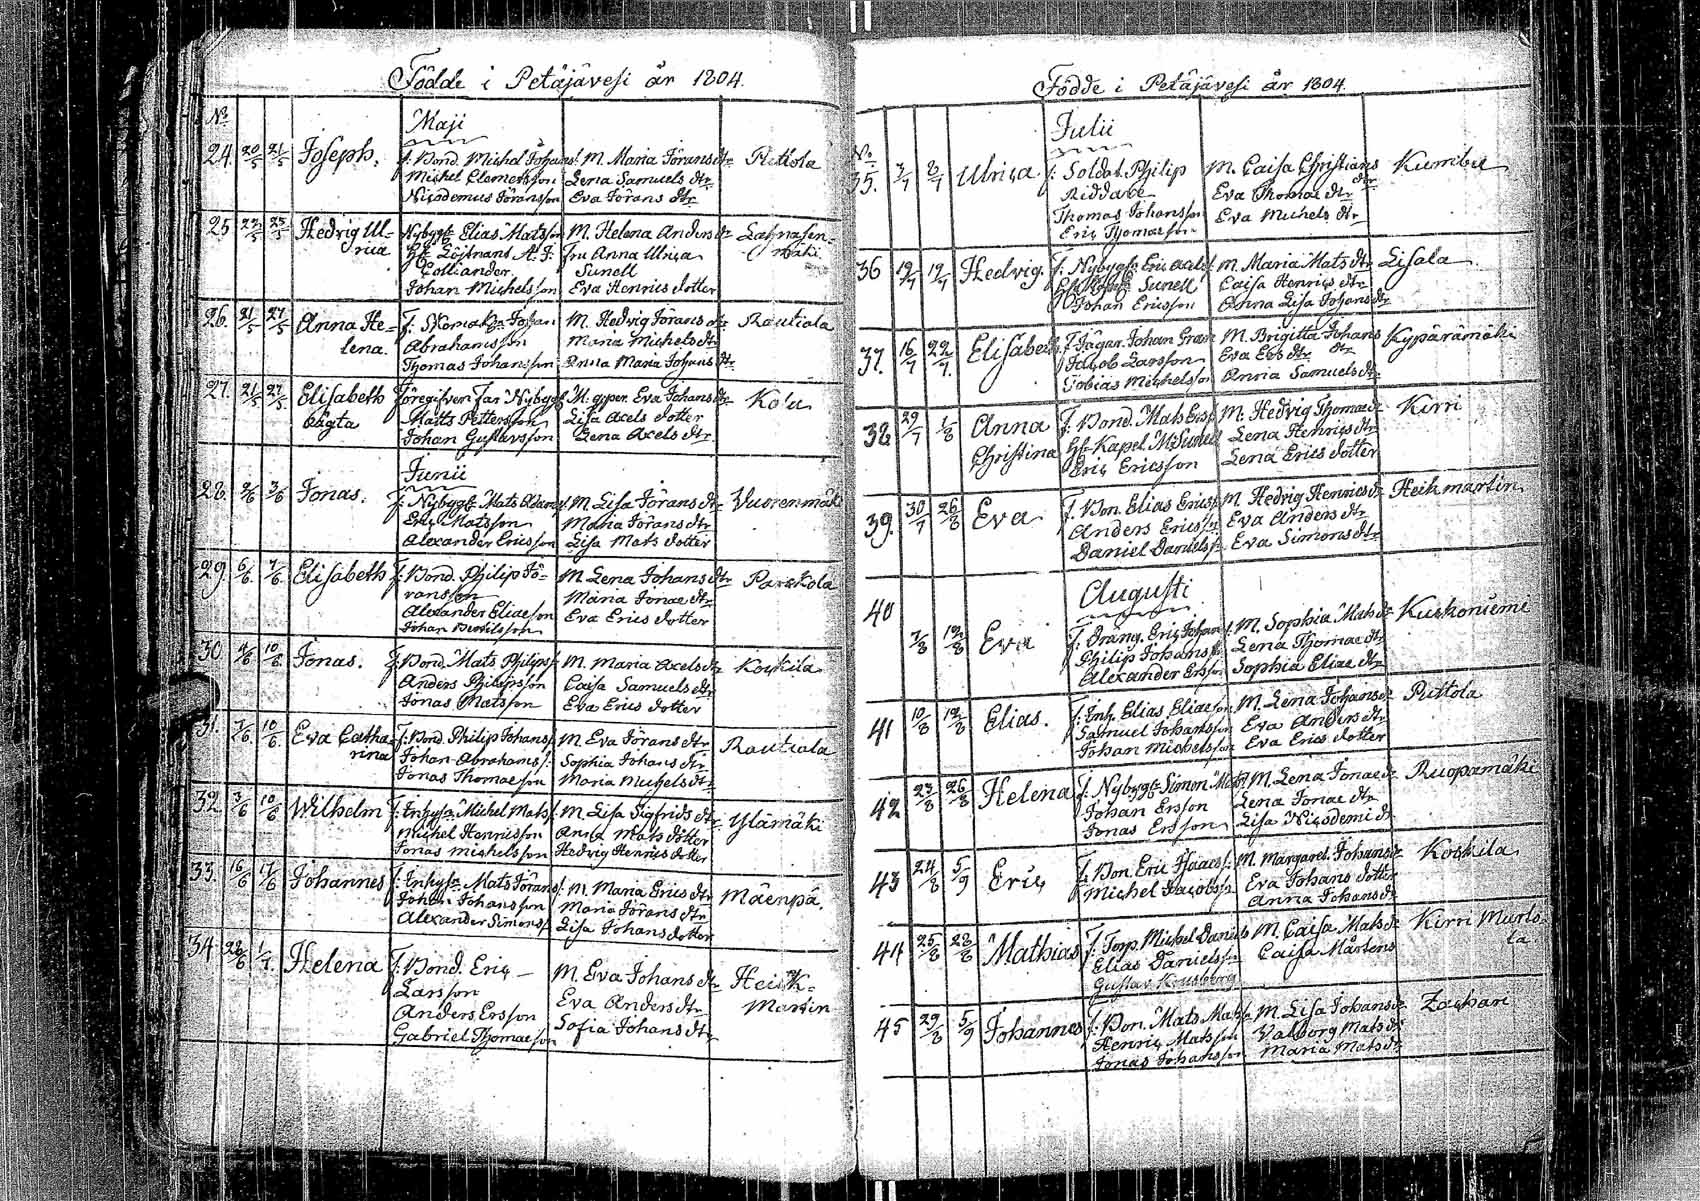 Födde i Petäjävesi år 1804.
No
Maji
24. 20/5 21/5 Joseph. f: Bond. Michel Johans: M. Maria Jörans dtr Pettola
Michel Clemetsson Lena Samuels dtr
Nicodemus Jöransson Eva Jörans dtr
25 22/5 23/5 Hedvig Ul- Nybygg. Elias Matsson M. Helena Anders dtr Lahnasen-
rica Löjtnans A. J. fru Anna Ulrica mäki
Colliander Sunell
Johan Michelsson Eva Henrics dotter
26. 21/5 27/5 Anna He- f: Skomak. Johan M. Hedvig Jörans dtr Rautiala
lena. Abrahamsson Maria Michels dtr
Thomas Johansson Anna Maria Johans dtr
27. 21/5 27/5 Elisabeth Föregifven far Nybygg M. Eva Johans dtr
oägta Matts Pettersson Lisa Axels dotter
Johan Gustavsson Lena Axels dtr
Junii
28. 2/6 3/6 Jonas. f: Nybygg. Mats M. Lisa Jörans dtr Vuorenmäki
Eric Matsson Maria Jörans dtr
Alexander Ericsson Lisa Mats dotter
29. 6/6 7/6 Elisabeth f: Bond. Philip Jö- M. Lena Johans dtr
ransson Maria Jonae dtr
Alexander Eliaeson Eva Erics dotter
Johan
30 10/6 Jonas. f: Bond. Mats Philips M. Maria Axels dtr Koskila
Anders Philipsson Caisa Samuels dtr
Jonas Matsson Eva Erics dotter
31. 7/6 10/6 Eva Catha f: Bond. Philip Johans M. Eva Jörans dtr Rautiala
rina Johan Abrahams Sophia Johans dtr
Jonas Thomaeson Maria Michels dtr
32. 3/6 10/6 Wilhelm f: Inhys. Michel Mats M. Lisa Sigfrids dtr Ylämäki
Michel Henricsson Anna Mats dotter
Jonas Michelsson Hedvig Henrics dotter
33. 16/6 17/6 Johannes f: Inhys. Mats Jörans M. Maria Erics dtr Mäenpä.
Johan Johansson Maria Jörans dtr
Alexander Simons Lisa Johans dotter
34 28/6 1/7 Helena f: Bond. Eric M. Eva Johans dtr Heick-
Larsson Eva Anders dtr Martin
Anders Ersson Sofia Johans dtr
Gabriel Thomaeson
Födde i Petäjävesi år 1804.
Julii
No
35. 7/7 8/7 Ulrica f: Soldat. Philip M. Caisa Christians dtr Kumbu
Riddare Eva Thomae dtr
Thomas Johansson Eva Michels dtr
Eric Thomaeson
36 12/7 12/7 Hedvig. f: Nybygg. Eric Axels M. Maria Mats dtr Lisala
Sunell Caisa Henrics dtr
Johan Ericsson Anna Lisa Johans dtr
37. 16/7 22/7 Elisabeth f: Jägar. Johan Gran M. Brigitta Johans dtr Kypärämäki
Jacob Larsson Eva
Tobias Michelsson Anna Samuels dtr
38 29/7 1/8 Anna f: Bond. Mats Ers M. Hedvig Thomae dr Kirri
Christina Kapel. Lena Henrics dtr
Eric Ericsson Lena Erics dotter
39. 30/7 26/8 Eva f. Bon. Elias Erics M. Hedvig Henrics dr Heikmartin
Anders Ericsson Eva Anders dtr
Daniel Daniels Eva Simons dtr
40
Augusti
7/8 12/8 Eva f: Eric Johan M. Sophia Mats dr Kuskoniemi
Philip Johans Lena Thomae dtr
Alexander Ersson Sophia Eliae dtr
41 10/8 12/8 Elias. f: Inh. Elias Eliaeson M. Lena Johans dr Pettola
Samuel Johansson Eva Anders dtr
Johan Michelsson Eva Erics dotter
42 23/8 26/8 Helena f: Nybygg. Simon Mats M. Lena Jonae dr Ruopamäki
Johan Ersson Lena Jonae dtr
Jonas Ersson Lisa Nicodemi dr
43 24/8 5/9 Eric f: Bon. Eric Isaacs M. Margaret. Johans dr Koskila
Michel Jacobs Eva Johans dotter
Anna Johans dr
44 25/8 28/8 Mathias f. Torp. Michel Daniels M. Caisa Mats dr Kirri Murto
Elias Danielsson Caisa Mårtens la.
Gustav
45 29/8 5/9 Johannes f: Bon. Mats Mats M. Lisa Johans dr Zachari
Henric Matsson Valborg Mats dr
Jonas Johansson Maria Mats dr